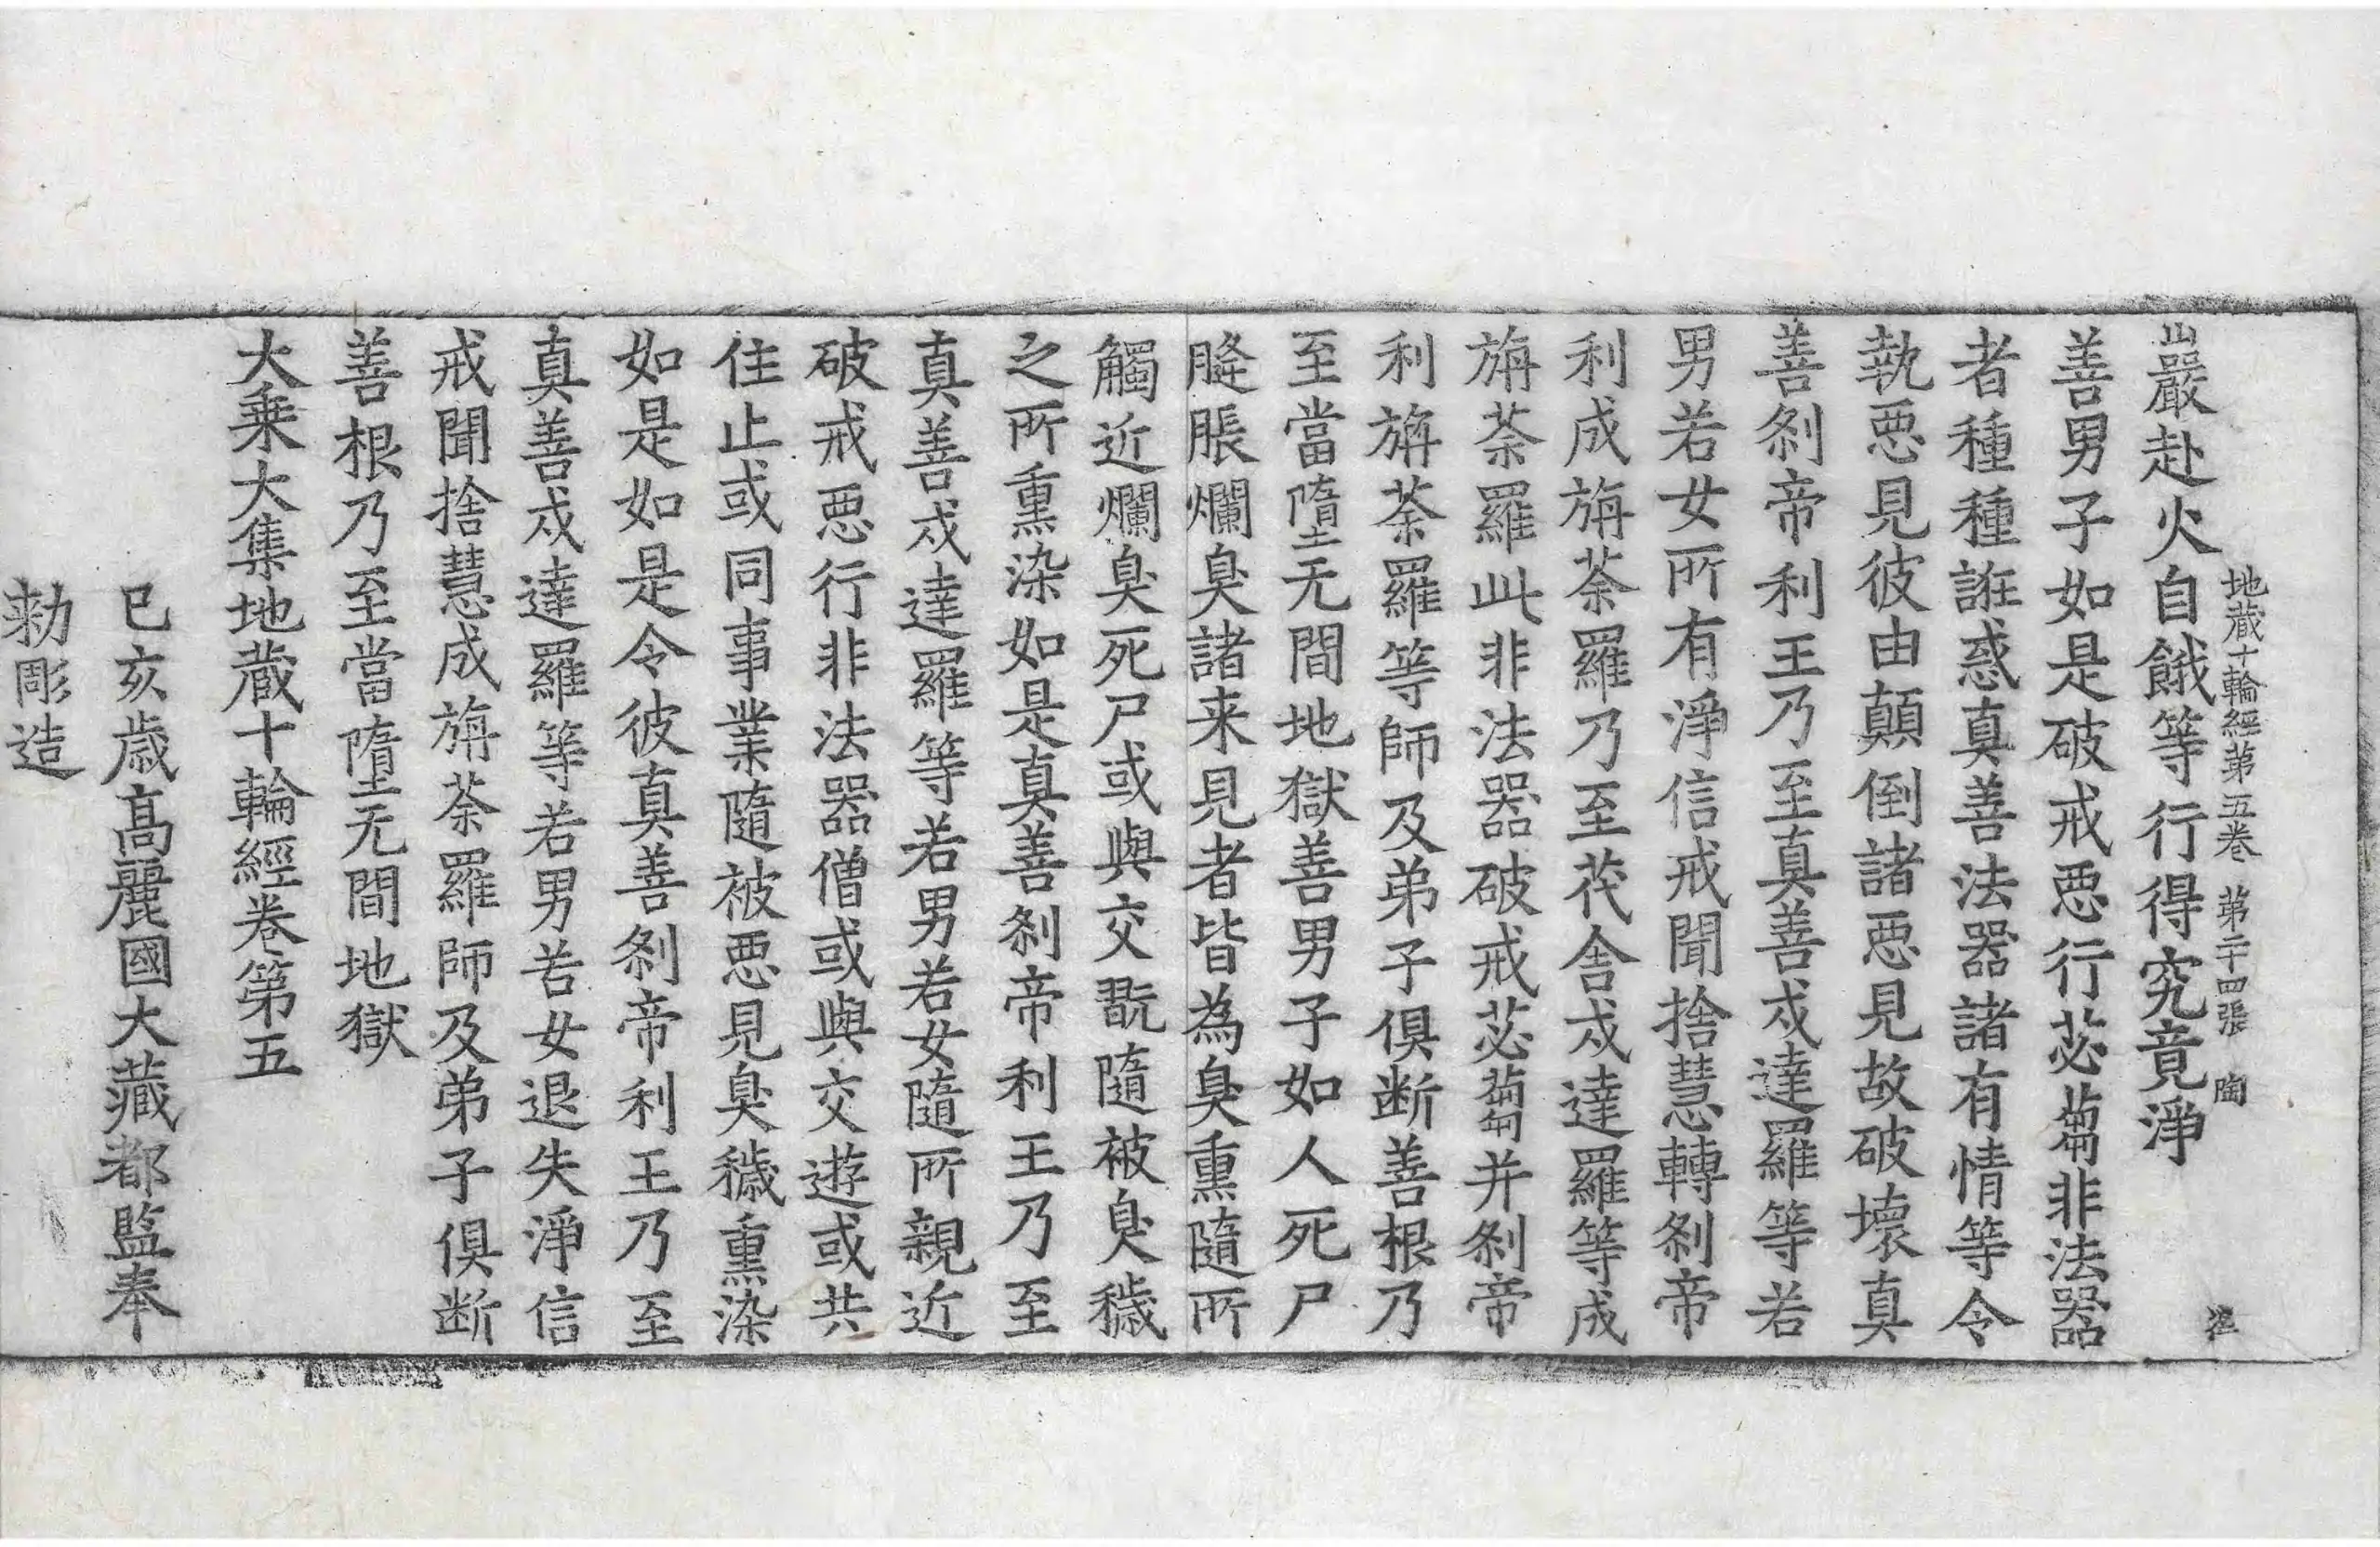 地藏十輪經第五卷 第二十四張 陶
山巖赴火自餓等行得究竟淨
善男子如是破戒惡行苾蒭非法器
者種種誑惑真善法器諸有情等令
執惡見彼由顛倒諸惡見故破壞真
善刹帝利王乃至真善戍達羅等若
男若女所有淨信戒聞捨慧轉刹帝
利成旃荼羅乃至茷舍戍達羅等成
旃荼羅此非法器破戒苾蒭并刹帝
利旃荼羅等師及弟子俱断善根乃
至當墮无間地獄善男子如人死尸
膖脹爛臭諸来見者皆為臭熏隨所
觸近爛臭死尸或與交翫隨被臭穢
之所熏染如是真善刹帝利王乃至
真善戍達羅等若男若女隨所親近
破戒惡行非法器僧或與交遊或共
住止或同事業隨被惡見臭穢熏染
如是如是令彼真善刹帝利王乃至
真善戍達羅等若男若女退失淨信
戒聞捨慧成旃荼羅師及弟子俱断
善根乃至當墮无間地獄
大乗大集地藏十輪經卷第五
己亥歳高麗國大藏都監奉
勑彫造